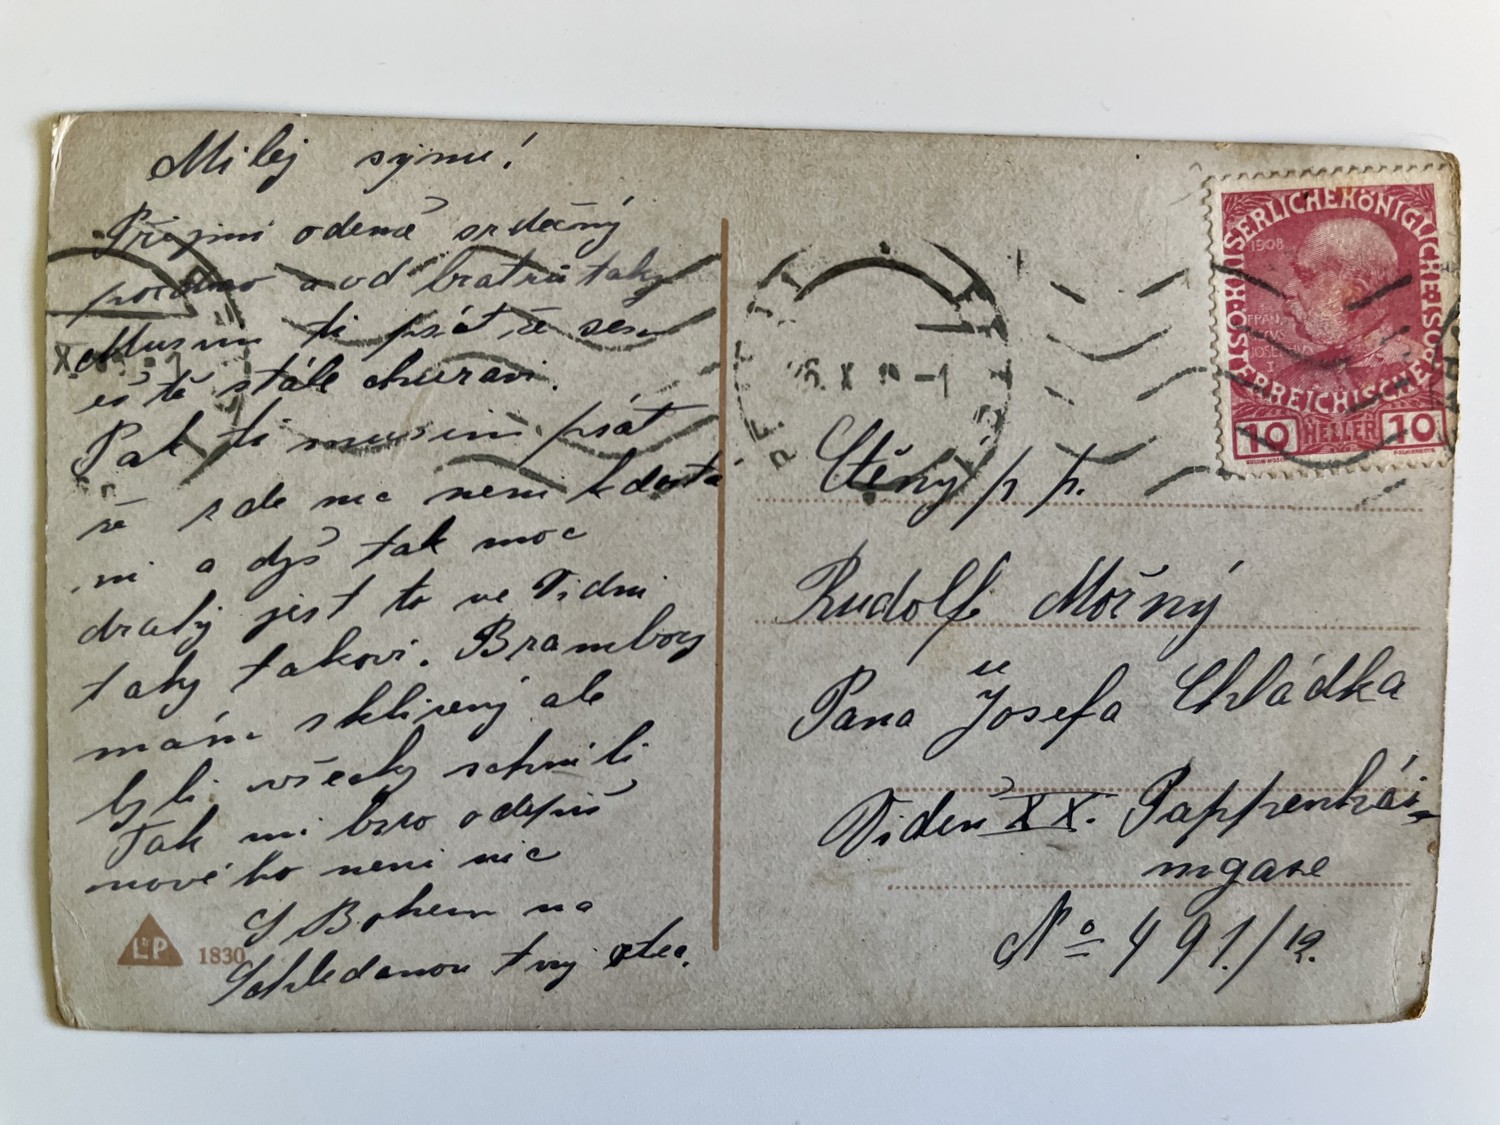 Milej synu!
Přijmi odemě srdečný
pozdrav a od bratrů taky
Musim ti psát že sem
eště stále churavi.
Pak ti musim psát
že zde nic neni k dostá
ni a dyž tak moc
drahy jest to ve Vidni
taky takovi. Brambory
mám sklizený ale
byli všecky schnili
Tak mi brzo odepiš
nového neni nic
S Bohem na
Schledanou tvuj otec.
L&P 1830
KAISERLICHE KÖNIGLICHE ÖSTERREICHISCHE POST
1908
FRANZ
JOSEF I.
10 HELLER 10
X
Ctěný p p.
Rudolf Mořný
u
Pana Josefa Chládka
Videň XX. Pappenhái-
mgase
No 491./19.